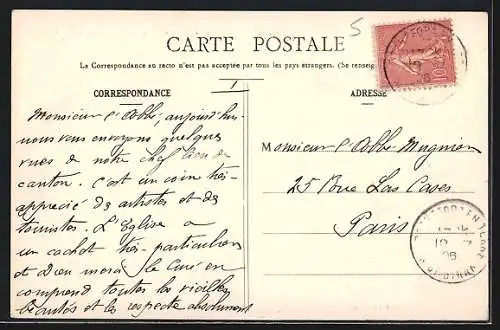 5
CARTE POSTALE
La Correspondance au recto n'est pas acceptée par tous les pays étrangers. (Se renseig
1
CORRESPONDANCE
ADRESSE
Monsieur l'Abbé, aujourd'hui
nous vous envoyons quelques
vues de notre chef lieu de
canton. C'est un coin très
apprécié des artistes et des
touristes. L'Eglise a
un cachet très particulier
et Dieu merci le Curé en
comprend toutes les vieilles
beautés et les respecte absolument
Monsieur l'Abbé Mugnier
25 Rue Las Cases
Paris
10
BELFORT-EN
12 7
06